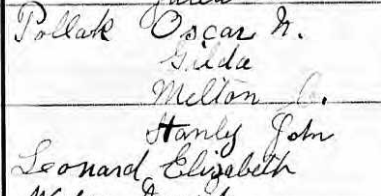 Pollak Oscar N.
Gilda
Melton
Stanly John
Leonard Elizabeth